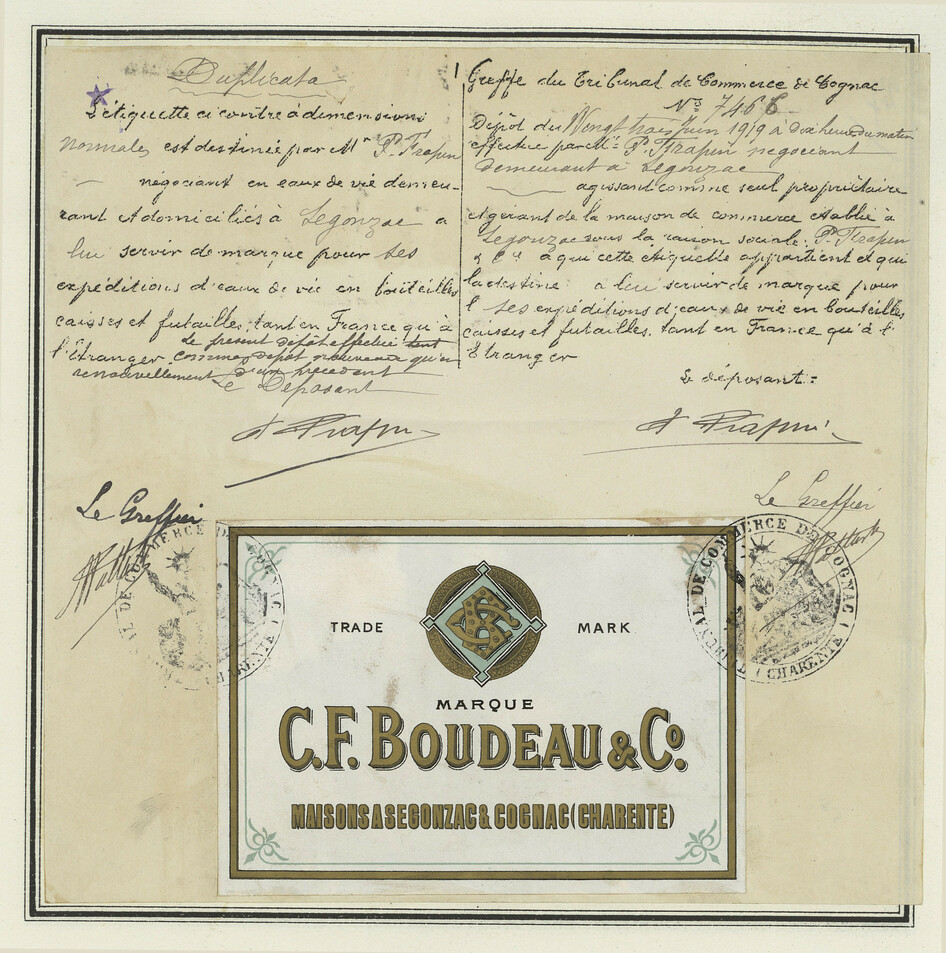 Duplicata
L'étiquette ci contre à dimensions
normales est destinée par Mr P. Frapin
négociant en eaux de vie demeu-
rant et domiciliés à Segonzac a
lui servir de marque pour ses
expéditions d'eaux de vie en bouteilles
caisses et futailles, tant en France qu'à
l'Étranger Le présent dépôt effectué tant
comme dépôt nouveau qu'en
renouvellement d'un précédent
Le Déposant
P Frapin
Le Greffier
Greffe du Tribunal de Commerce de Cognac
No 7466
Dépôt du Vingt trois Juin 1919 à dix heures du matin
effectué par M. P. Frapin négociant
demeurant à Segonzac
agissant comme seul propriétaire
et gérant de la maison de commerce établie à
Segonzac sous la raison sociale: P. Frapin
& Cie à qui cette étiquette appartient et qui
la destine à lui servir de marque pour
ses expéditions d'eaux de vie en bouteilles
caisses et futailles, tant en France qu'à l'
Étranger
Le déposant:
P Frapin
Le Greffier
TRIBUNAL DE COMMERCE DE COGNAC
(CHARENTE)
TRADE MARK
MARQUE
C.F. BOUDEAU & Co.
MAISONS A SEGONZAC & COGNAC (CHARENTE)